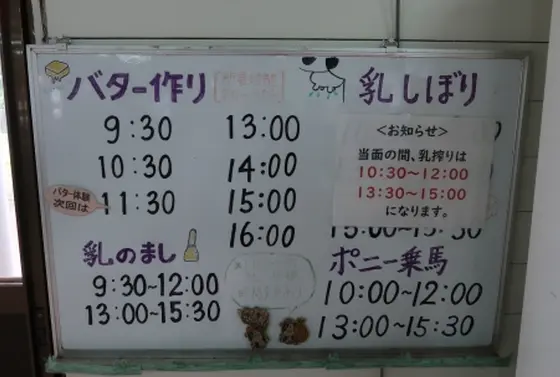 バター作り
9:30
10:30
11:30
13:00
14:00
15:00
16:00
バター体験
次回は
乳のまし
9:30~12:00
13:00~15:30
乳しぼり
<お知らせ>
当面の間、乳搾りは
10:30~12:00
13:30~15:00
になります。
15:00~15:30
ポニー乗馬
10:00~12:00
13:00~15:30